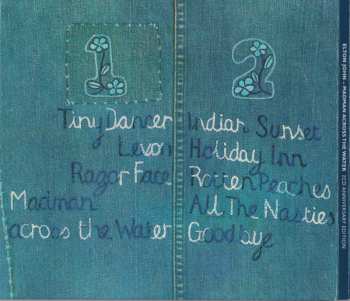 1
Tiny Dancer
Levon
Razor Face
Madman
across the Water
2
Indian Sunset
Holiday Inn
Rotten Peaches
All The Nasties
Goodbye
ELTON JOHN - MADMAN ACROSS THE WATER 2CD ANNIVERSARY EDITION